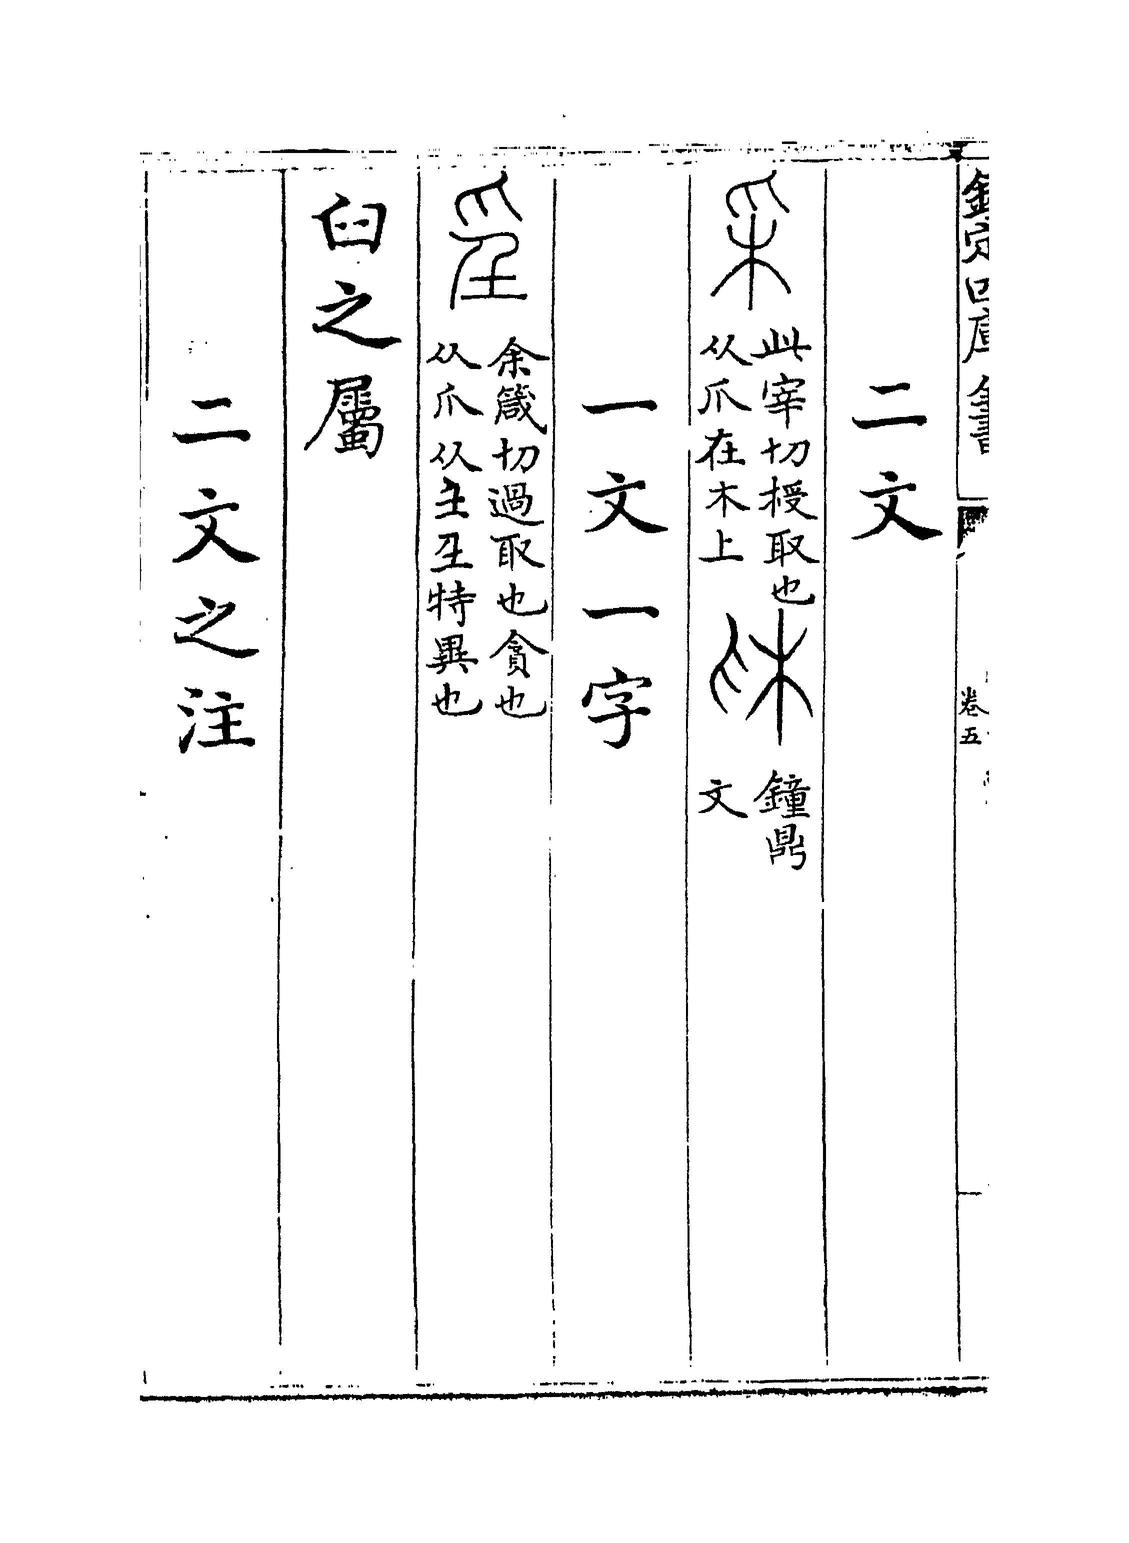 欽定四庫全書
卷五
二文
采
此宰切授取也
从爪在木上
采
鐘鼎
文
一文一字
㸒
余箴切過取也貪也
从爪从𡈼𡈼特異也
臼之屬
二文之注